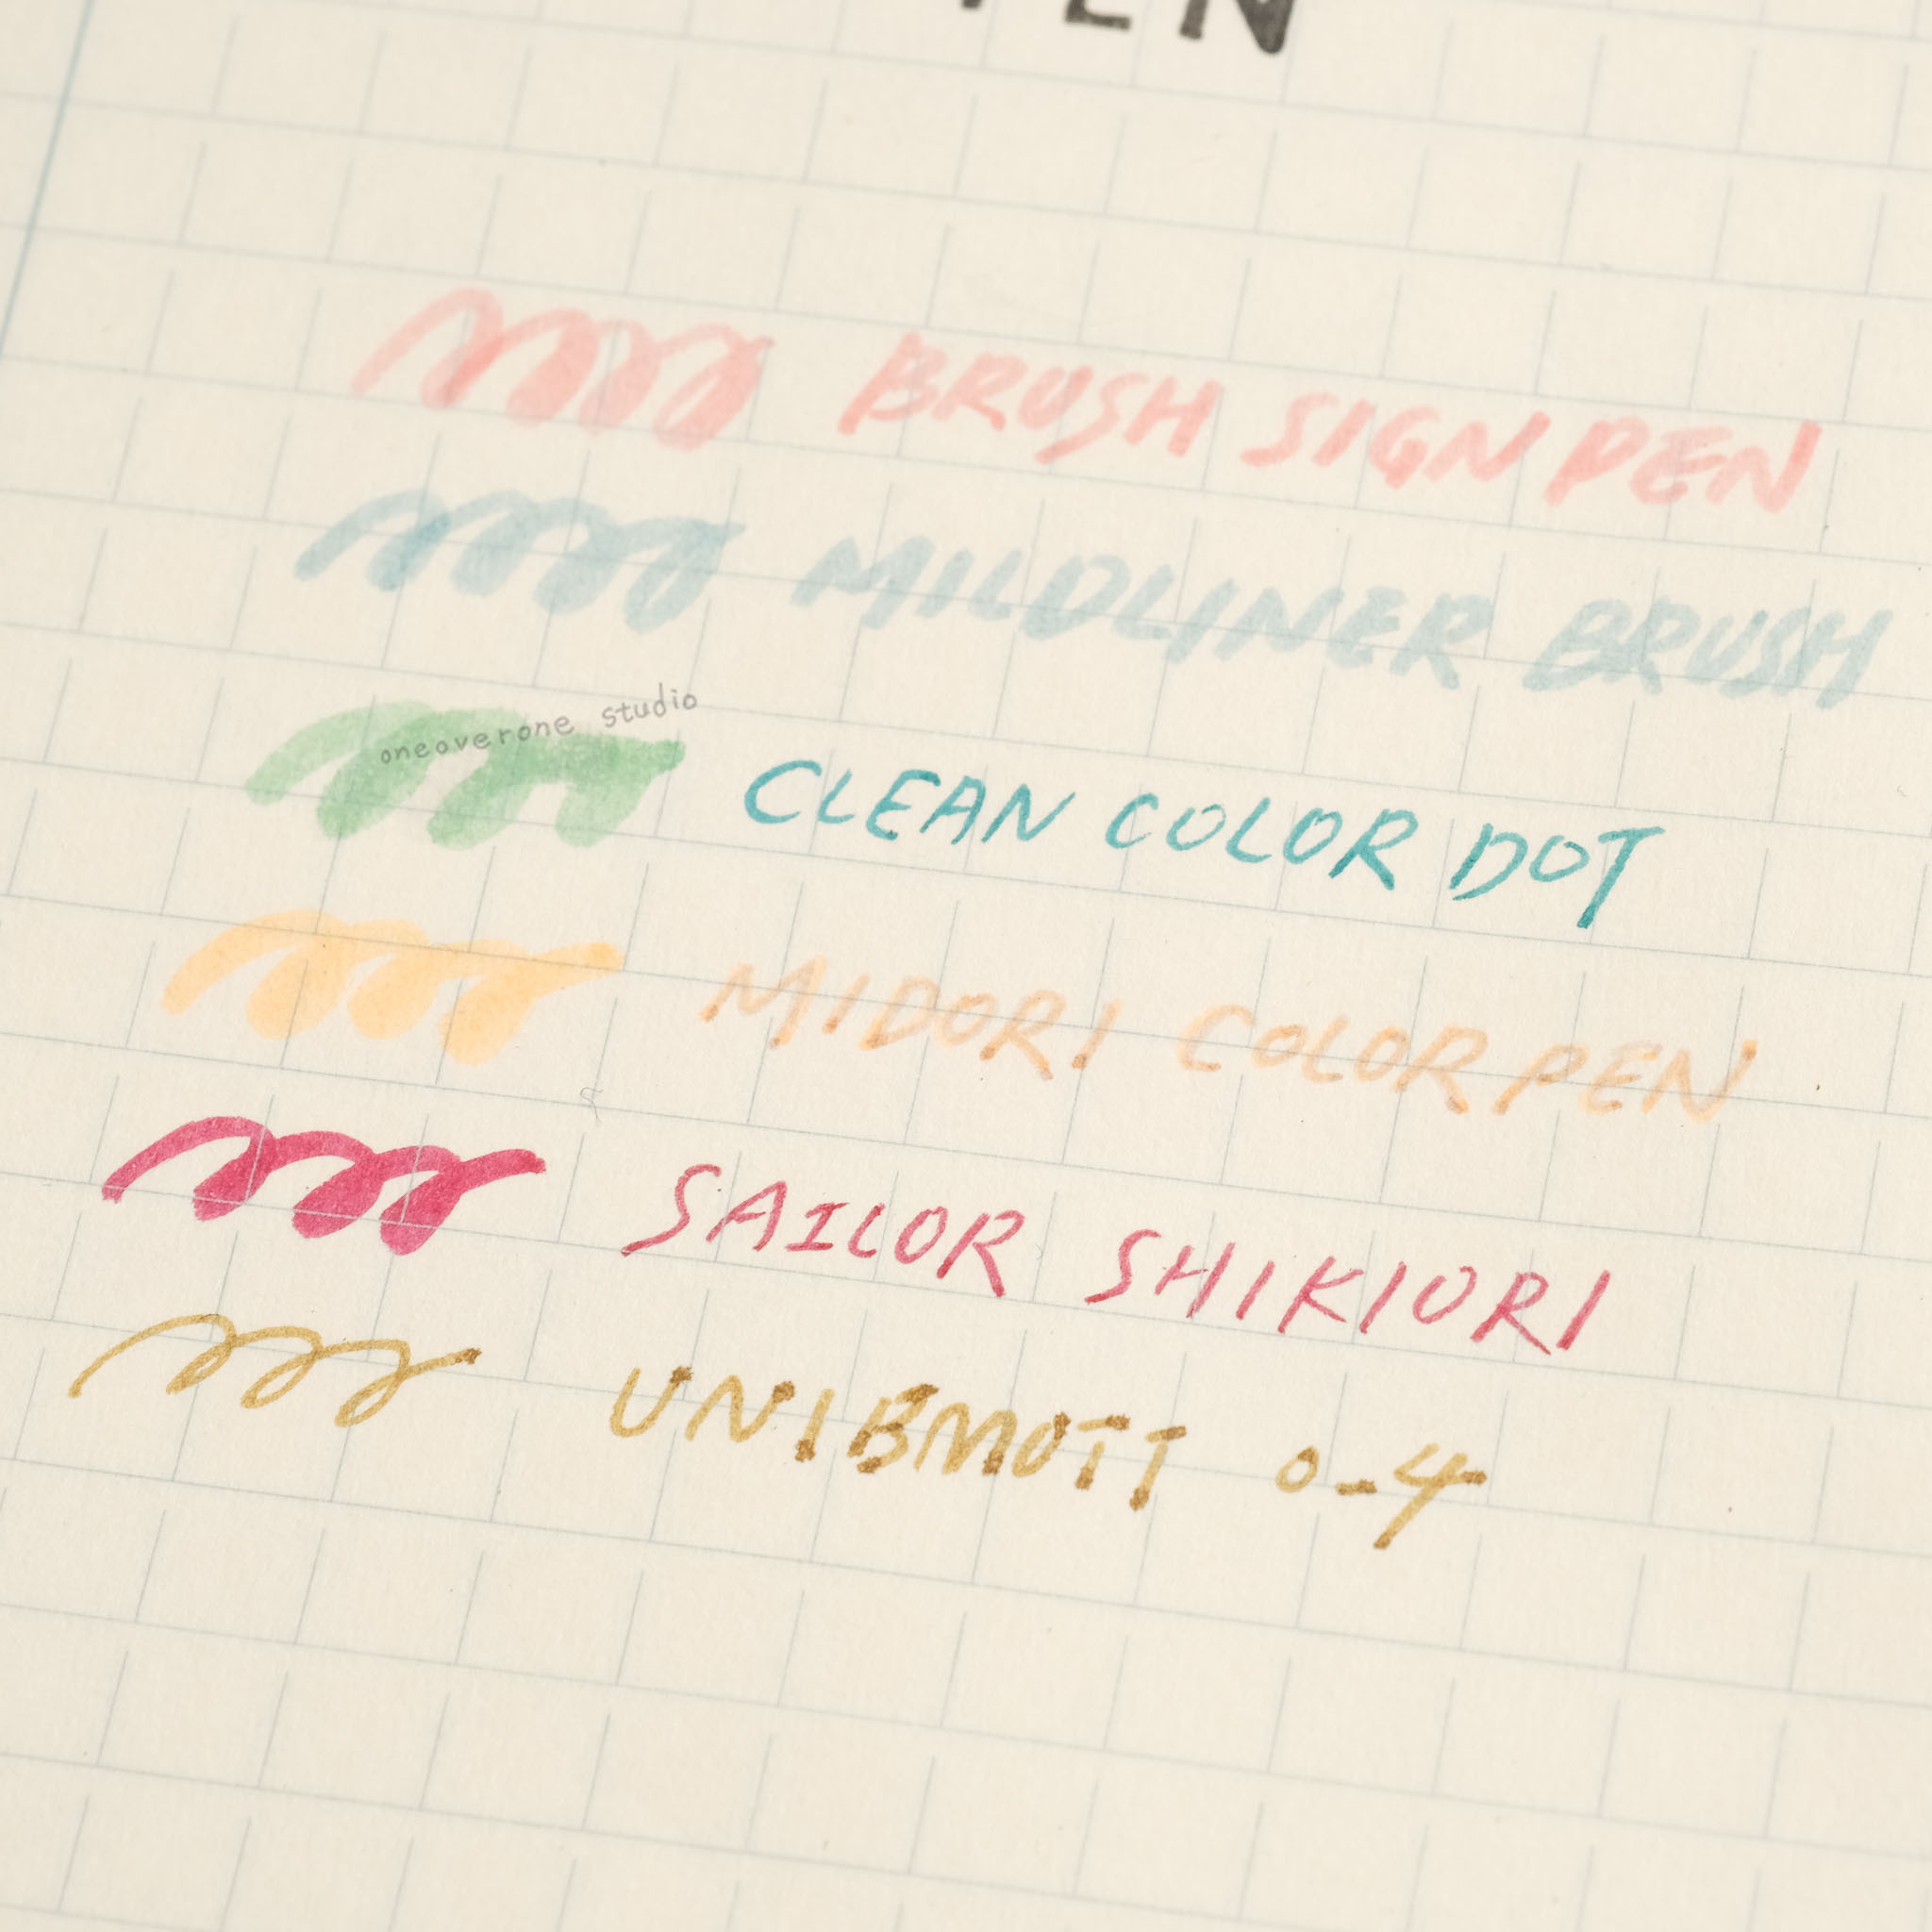 PEN
BRUSH SIGN PEN
MILDLINER BRUSH
oneoverone studio
CLEAN COLOR DOT
MIDORI COLOR PEN
SAILOR SHIKIORI
UNIBMOTT 0-4